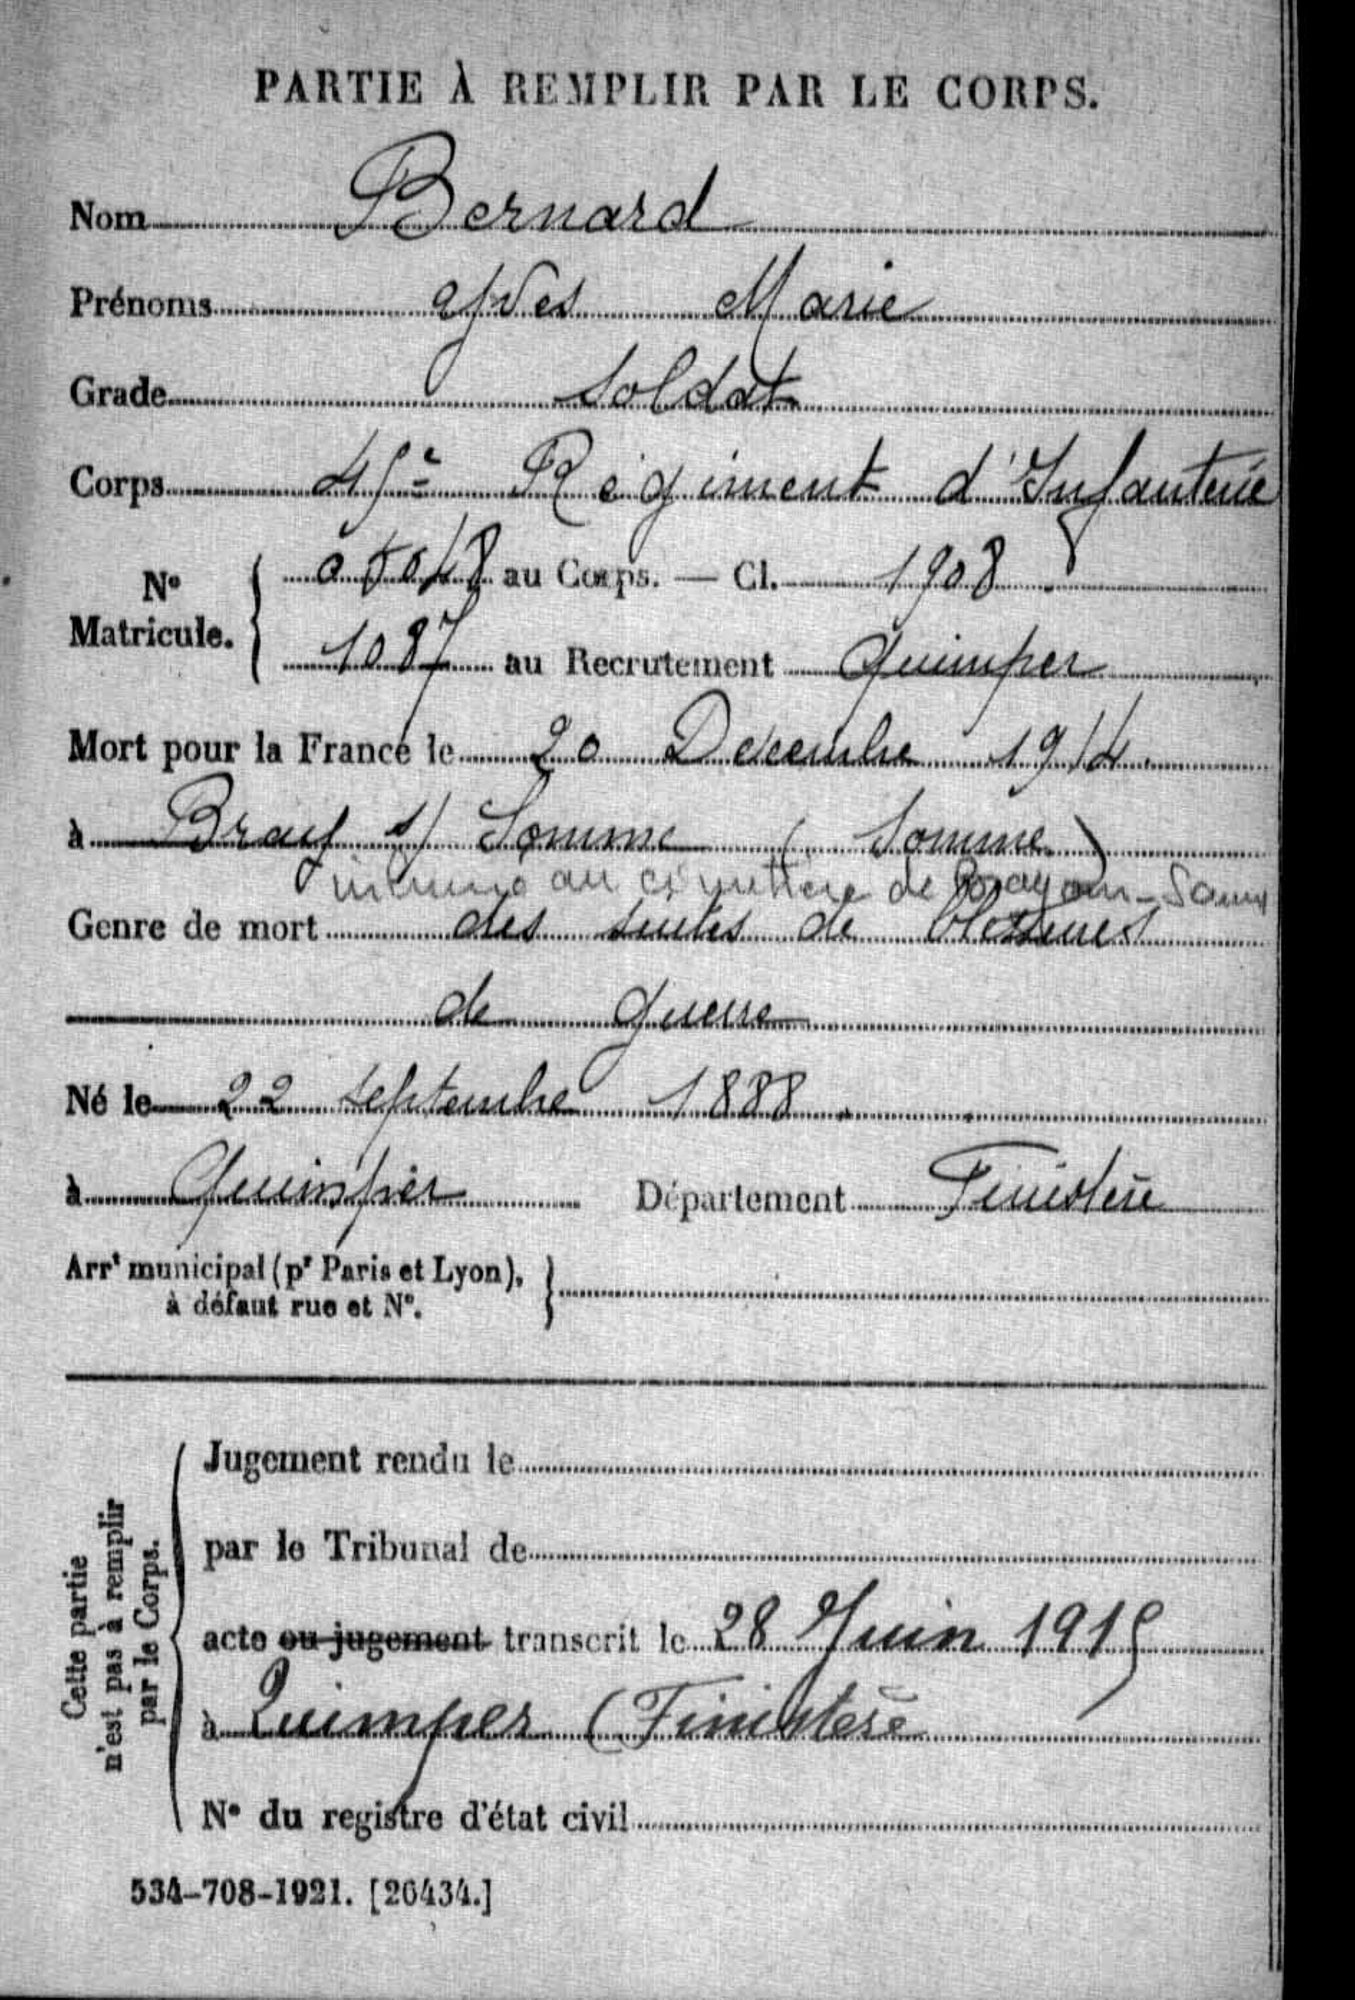 PARTIE À REMPLIR PAR LE CORPS.
Nom Bernard
Prénoms Yves Marie
Grade Soldat
Corps 45e Régiment d'Infanterie
No Matricule. { 05048 au Corps. — Cl. 1908
1087 au Recrutement Quimper
Mort pour la France le 20 Decembre 1914
à Bray s/ Somme (Somme)
inhumé au cimetière de Bray sur-Somme
Genre de mort des suites de blessures
de guerre
Né le 22 septembre 1888
à Quimper Département Finistère
Arrt municipal (pr Paris et Lyon), }
à défaut rue et No.
Cette partie
n'est pas à remplir
par le Corps.
Jugement rendu le
par le Tribunal de
acte ou jugement transcrit le 28 Juin 1915
à Quimper (Finistère
No du registre d'état civil
534-708-1921. [26434.]